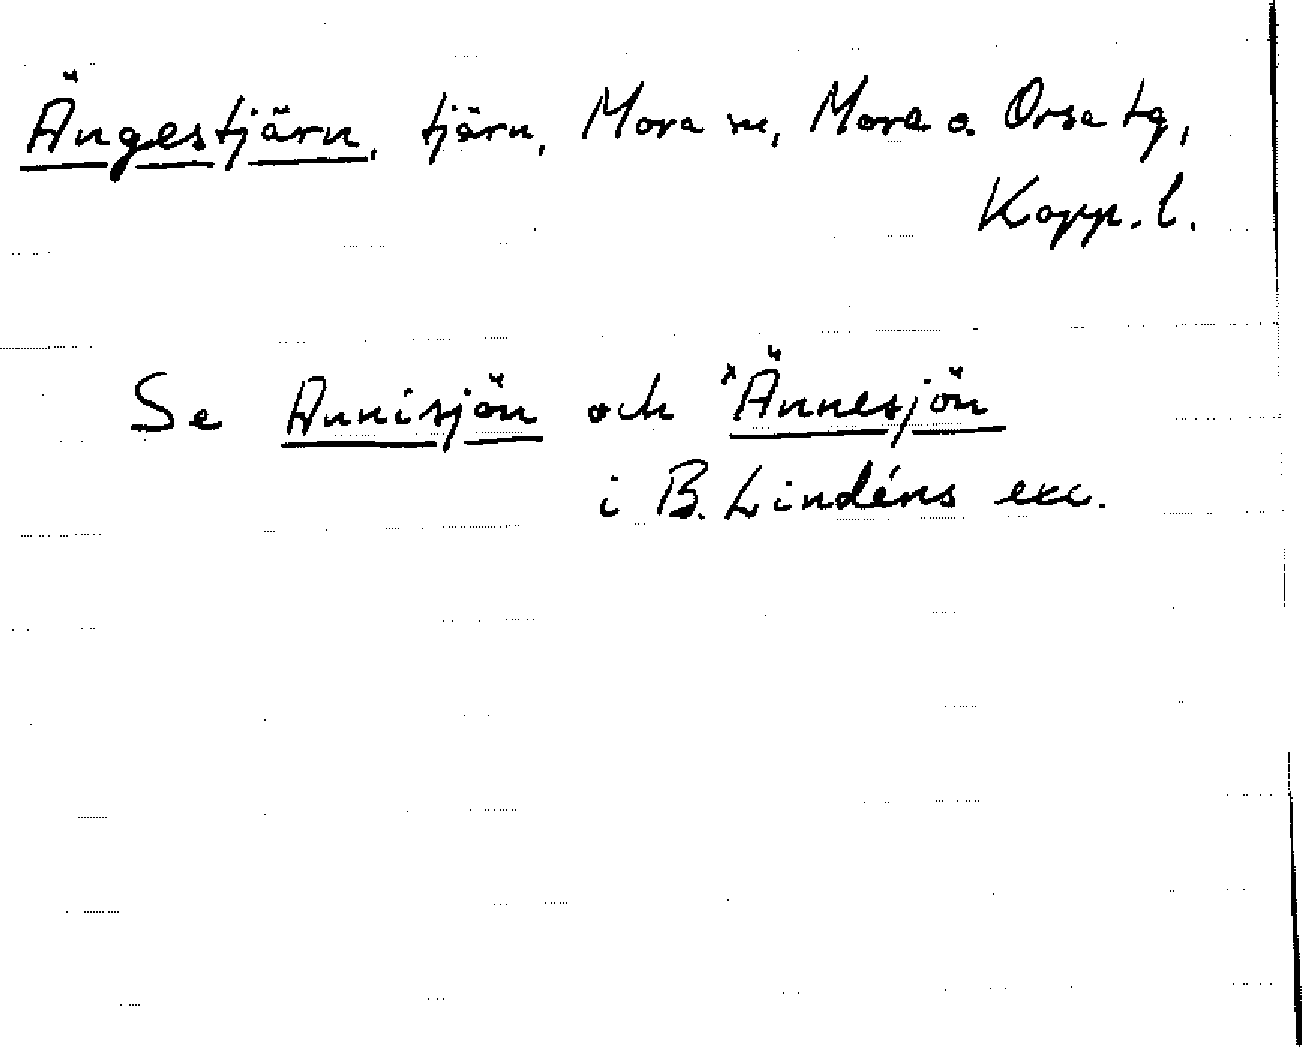 Ängestjärn, tjärn, Mora sn, Mora o. Orsa tg,
Kopp. l.
Se Annisjön och *Ännesjön
i B. Lindéns exc.